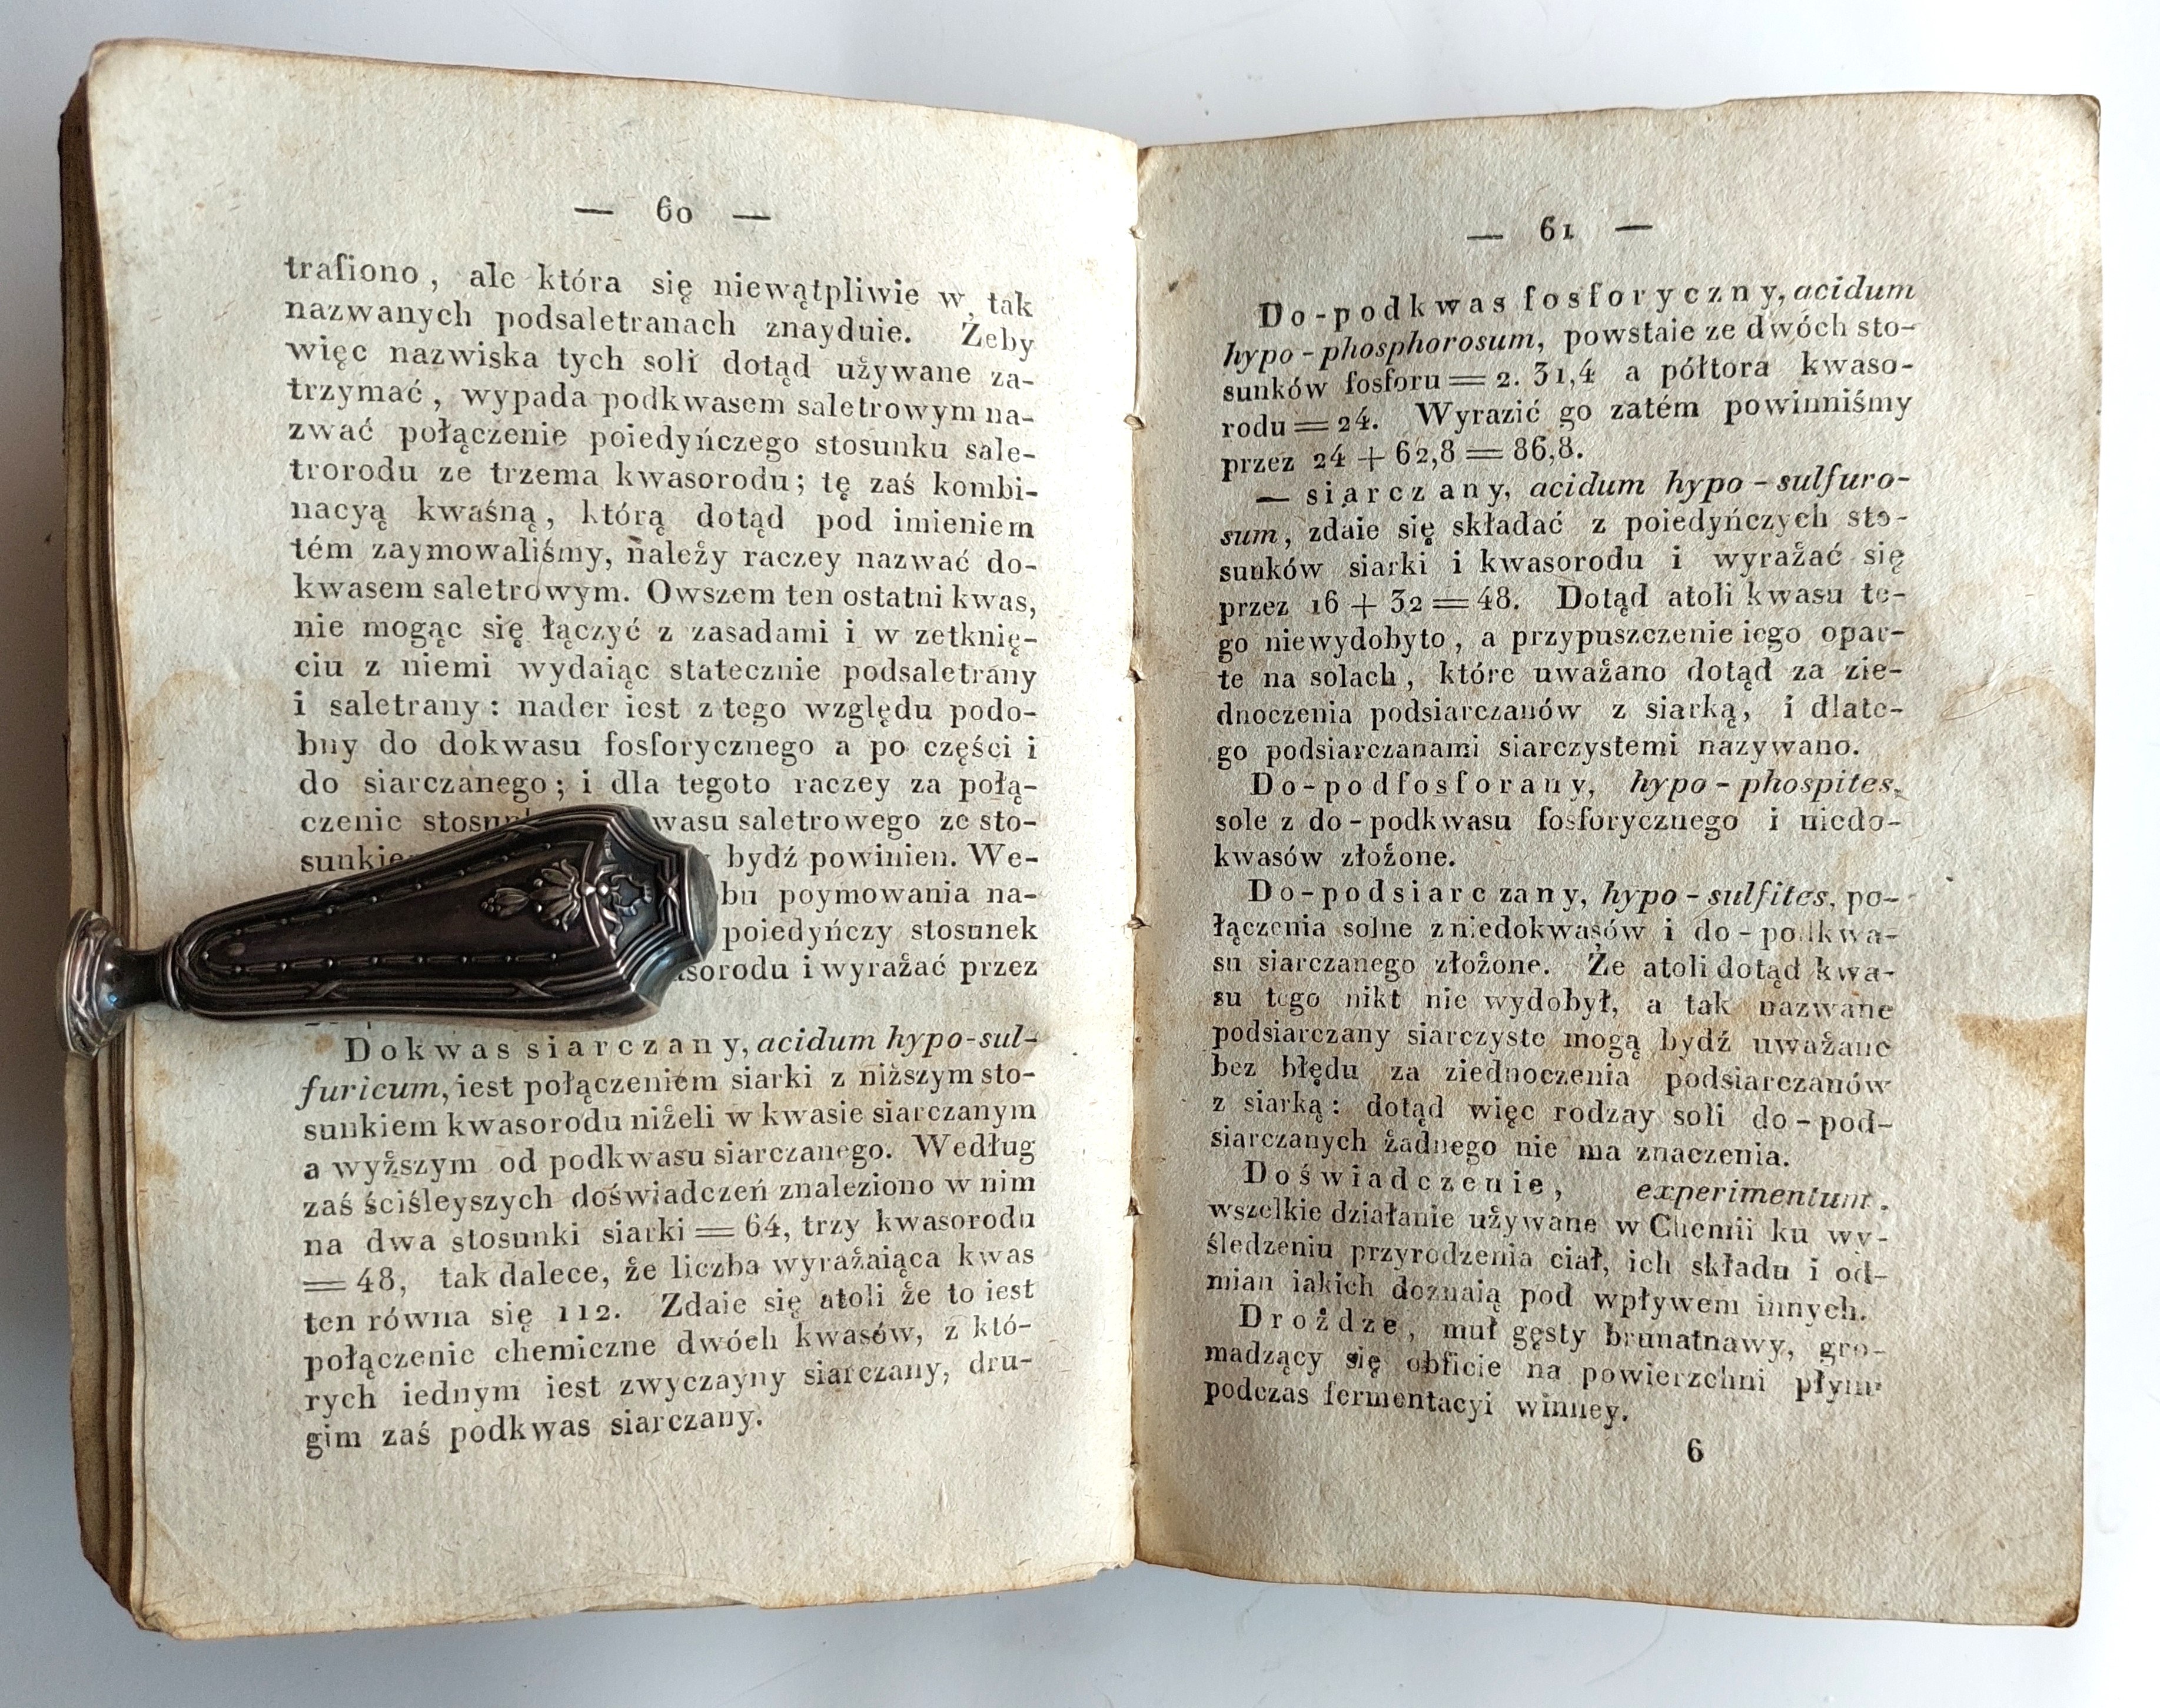 — 60 —
trafiono, ale która się niewątpliwie w tak
nazwanych podsaletranach znayduie. Żeby
więc nazwiska tych soli dotąd używane za-
trzymać, wypada podkwasem saletrowym na-
zwać połączenie poiedyńczego stosunku sale-
trorodu ze trzema kwasorodu; tę zaś kombi-
nacyą kwaśną, którą dotąd pod imieniem
tém zaymowaliśmy, należy raczey nazwać do-
kwasem saletrowym. Owszem ten ostatni kwas,
nie mogąc się łączyć z zasadami i w zetknię-
ciu z niemi wydaiąc statecznie podsaletrany
i saletrany: nader iest z tego względu podo-
bny do dokwasu fosforycznego a po części i
do siarczanego; i dla tegoto raczey za połą-
czenie saletrowego ze sto-
bydź powinien. We-
poymowania na-
poiedyńczy stosunek
i wyrażać przez
Dokwas siarczany, acidum hypo-sul-
furicum, iest połączeniem siarki z niższym sto-
sunkiem kwasorodu niżeli w kwasie siarczanym
a wyższym od podkwasu siarczanego. Według
zaś ściśleyszych doświadczeń znaleziono w nim
na dwa stosunki siarki = 64, trzy kwasorodu
= 48, tak dalece, że liczba wyrażaiąca kwas
ten równa się 112. Zdaie się atoli że to iest
połączenie chemiczne dwóch kwasów, z któ-
rych iednym iest zwyczayny siarczany, dru-
gim zaś podkwas siarczany.
— 61 —
Do-podkwas fosforyczny, acidum
hypo-phosphorosum, powstaie ze dwóch sto-
sunków fosforu = 2. 31,4 a półtora kwaso-
rodu = 24. Wyrazić go zatém powinniśmy
przez 24 + 62,8 = 86,8.
— siarczany, acidum hypo-sulfuro-
sum, zdaie się składać z poiedyńczych sto-
sunków siarki i kwasorodu i wyrażać się
przez 16 + 32 = 48. Dotąd atoli kwasu te-
go niewydobyto, a przypuszczenie iego opar-
te na solach, które uważano dotąd za zie-
dnoczenia podsiarczanów z siarką, i dlate-
go podsiarczanami siarczystemi nazywano.
Do-podfosforany, hypo-phospites,
sole z do-podkwasu fosforycznego i niedo-
kwasów złożone.
Do-podsiarczany, hypo-sulfites, po-
łączenia solne z niedokwasów i do-podkwa-
su siarczanego złożone. Że atoli dotąd kwa-
su tego nikt nie wydobył, a tak nazwane
podsiarczany siarczyste mogą bydź uważane
bez błędu za ziednoczenia podsiarczanów
z siarką: dotąd więc rodzay soli do-pod-
siarczanych żadnego nie ma znaczenia.
Doświadczenie, experimentum.
wszelkie działanie używane w Chemii ku wy-
śledzeniu przyrodzenia ciał, ich składu i od-
mian iakich doznaią pod wpływem innych.
Drożdze, muł gęsty brunatnawy, gro-
madzący się obficie na powierzchni płynu
podczas fermentacyi winney.
6